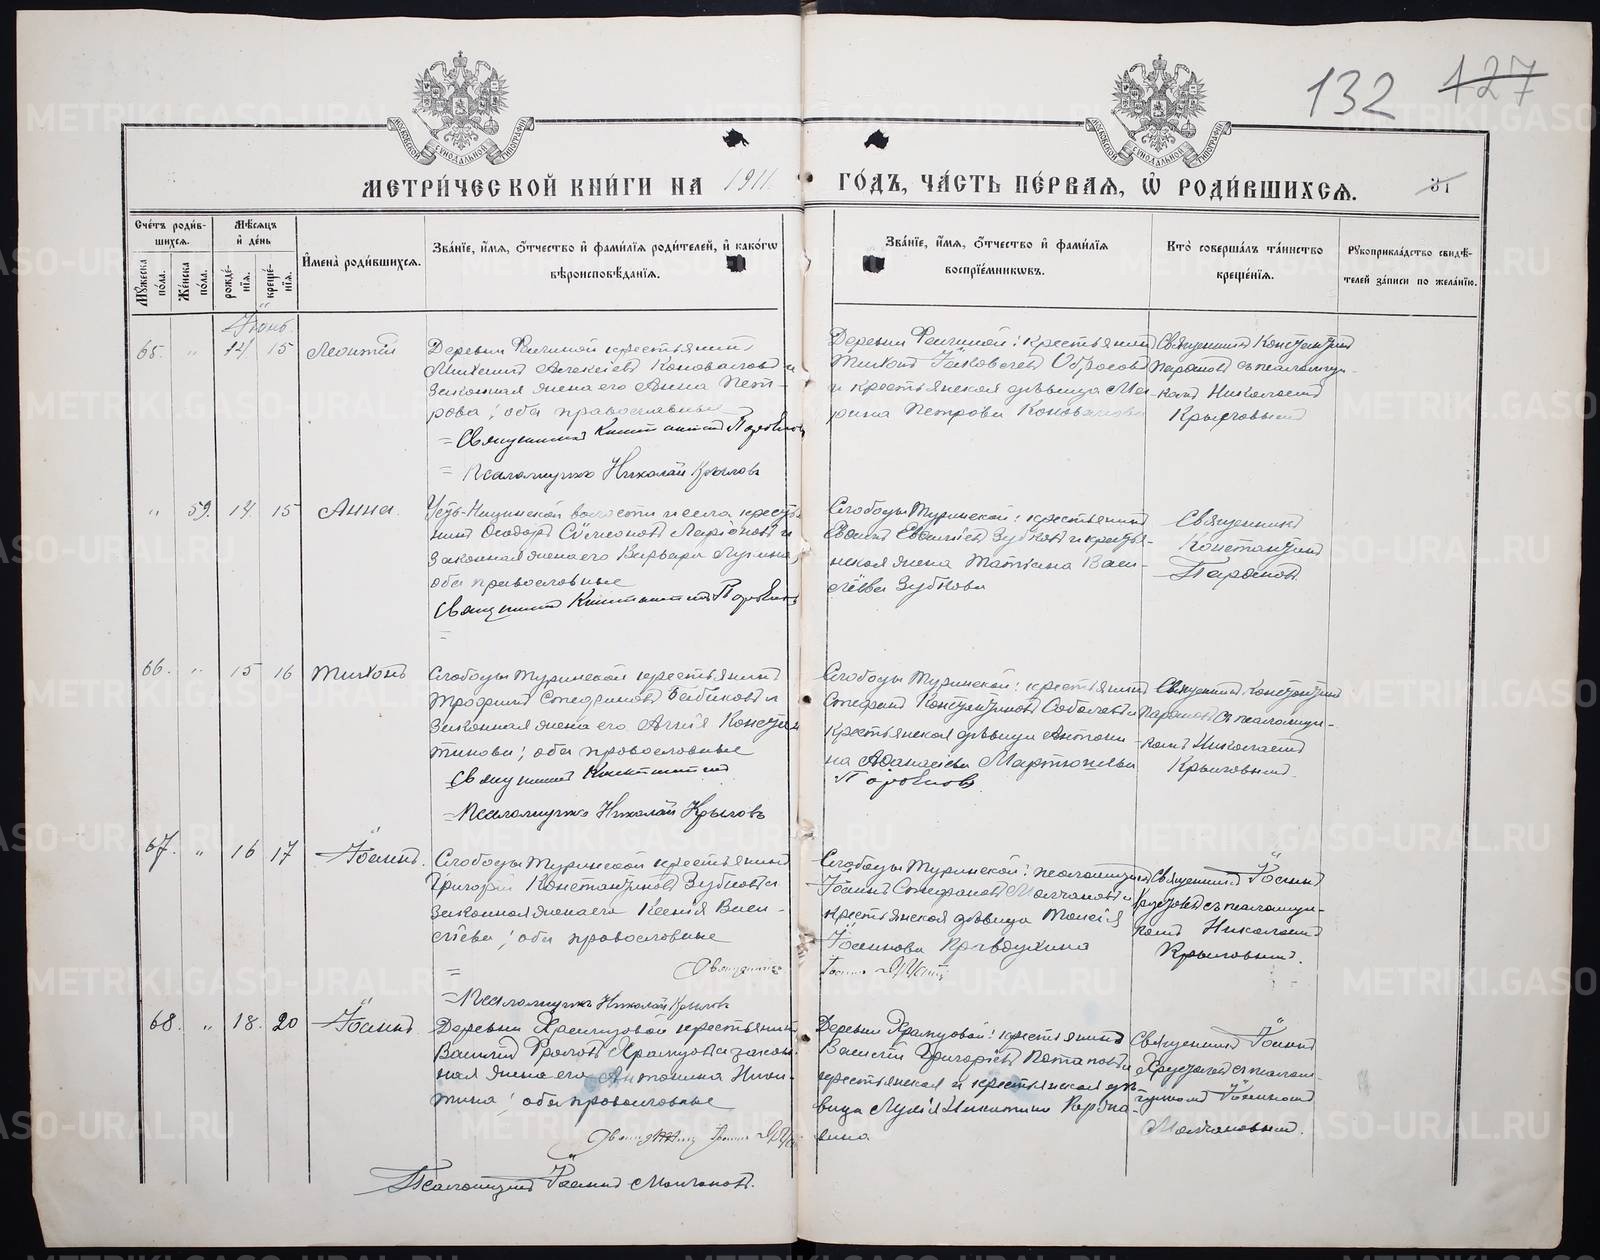 132 127
МЕТРИ́ЧЕСКОЙ КНИ́ГИ НА 1911 ГО́ДЪ, ЧА́СТЬ ПЕ́РВАЯ, Ѡ РОДИ́ВШИХСЯ.
31
Сче́тъ роди́в-
шихся.
Му́жеска по́ла.
Же́нска по́ла.
Мѣ́сяцъ
и́ де́нь
рожде́-
нія.
креще́-
нія.
И́мена̀ роди́вшихся.
Зва́ніе, и́мя, ѻ́тчество и́ фами́лія роди́телей, и́ како́гѡ
вѣроисповѣ́данія.
Зва́ніе, и́мя, ѻ́тчество и́ фами́лія
воспріе́мниковъ.
Кто̀ соверша́лъ та́инство
креще́нія.
Рукоприкла́дство свидѣ́-
телей за́писи по жела́нію.
Іюнь.
65. " 14 15 Леонтій
Деревни крестьянинъ
Михаилъ Алексѣевъ Коноваловъ и
законная жена его Анна Пет-
рова; оба православные
= Священникъ Константинъ
= Псаломщикъ Николай Крыловъ
Деревни крестьянинъ
Тихонъ Іаковлевъ
и крестьянская дѣвица Ма-
рина Петрова Коновалова
Священникъ Константинъ
съ псаломщи-
комъ Николаемъ
Крыловымъ
" 59. 14 15 Анна.
Усть-Ницинской волости и села кресть-
нинъ Ѳеодоръ Симеоновъ Ларіоновъ и
законная жена его Варвара
оба православные
Священникъ Константинъ
=
Слободы Туринской: крестьянинъ
Зубковъ и кресть-
нская жена Татіана Васи-
ліева Зубкова
Священникъ
Константинъ
66. " 15 16 Тихонъ
Слободы Туринской крестьянинъ
Трофимъ Стефановъ Бабиковъ и
законная жена его Агнія Констан
тинова; оба православные
Священникъ Константинъ
= Псаломщикъ Николай Крыловъ
Слободы Туринской: крестьянинъ
Стефанъ Константиновъ Соболевъ и
крестьянская дѣвица Антони-
на Аѳанасіева
Священникъ Константинъ
съ псаломщи-
комъ Николаемъ
Крыловымъ.
67. " 16 17 Іоаннъ.
Слободы Туринской крестьянинъ
Григорій Константиновъ Зубковъ и
законная жена его Ксенія Васи-
ліева; оба православные
= Священникъ
= Псаломщикъ Николай Крыловъ
Слободы Туринской: псаломщикъ
Іоаннъ Стефановъ Молчановъ и
крестьянская дѣвица Таисія
Іоаннова
Священникъ Іоаннъ
съ псаломщи-
комъ Николаемъ
Крыловымъ.
68. " 18. 20 Іоаннъ.
Деревни Храмцовой крестьянинъ
Василій Фроловъ Храмцовъ и закон-
ная жена его Антонина Ники-
тина; оба православные
Деревни Храмцовой: крестьянинъ
Василій Григоріевъ Потаповъ и
крестьянская и крестьянская дѣ-
вица Никитина
Священникъ Іоаннъ
съ псалом-
щикомъ Іоанномъ
Молчановымъ.
Псаломщикъ Іоаннъ Молчановъ.